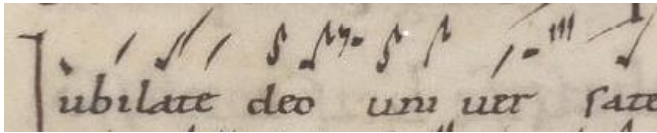 Iubilate deo uni uer sate